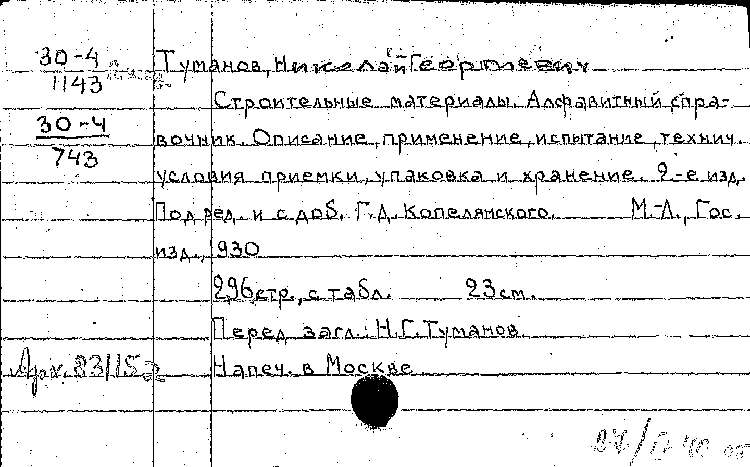 30-4 Туманов, Николай Георгиевич
1143
Строительные материалы. Алфавитный спра-
30-4 вочник. Описание, применение, испытание, технич.
743
условия приемки, упаковка и хранение. 2-е изд.
Под ред. и с доб. Г.Д. Копелянского. М.-Л., Гос.
изд., 930
296стр., с табл. 23см.
Перед загл.: Н.Г.Туманов.
Арх. 83/15 Напеч. в Москве